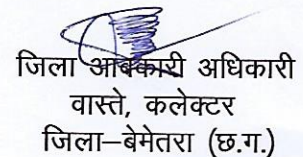 जिला आबकारी अधिकारी
वास्ते, कलेक्टर
जिला–बेमेतरा (छ.ग.)